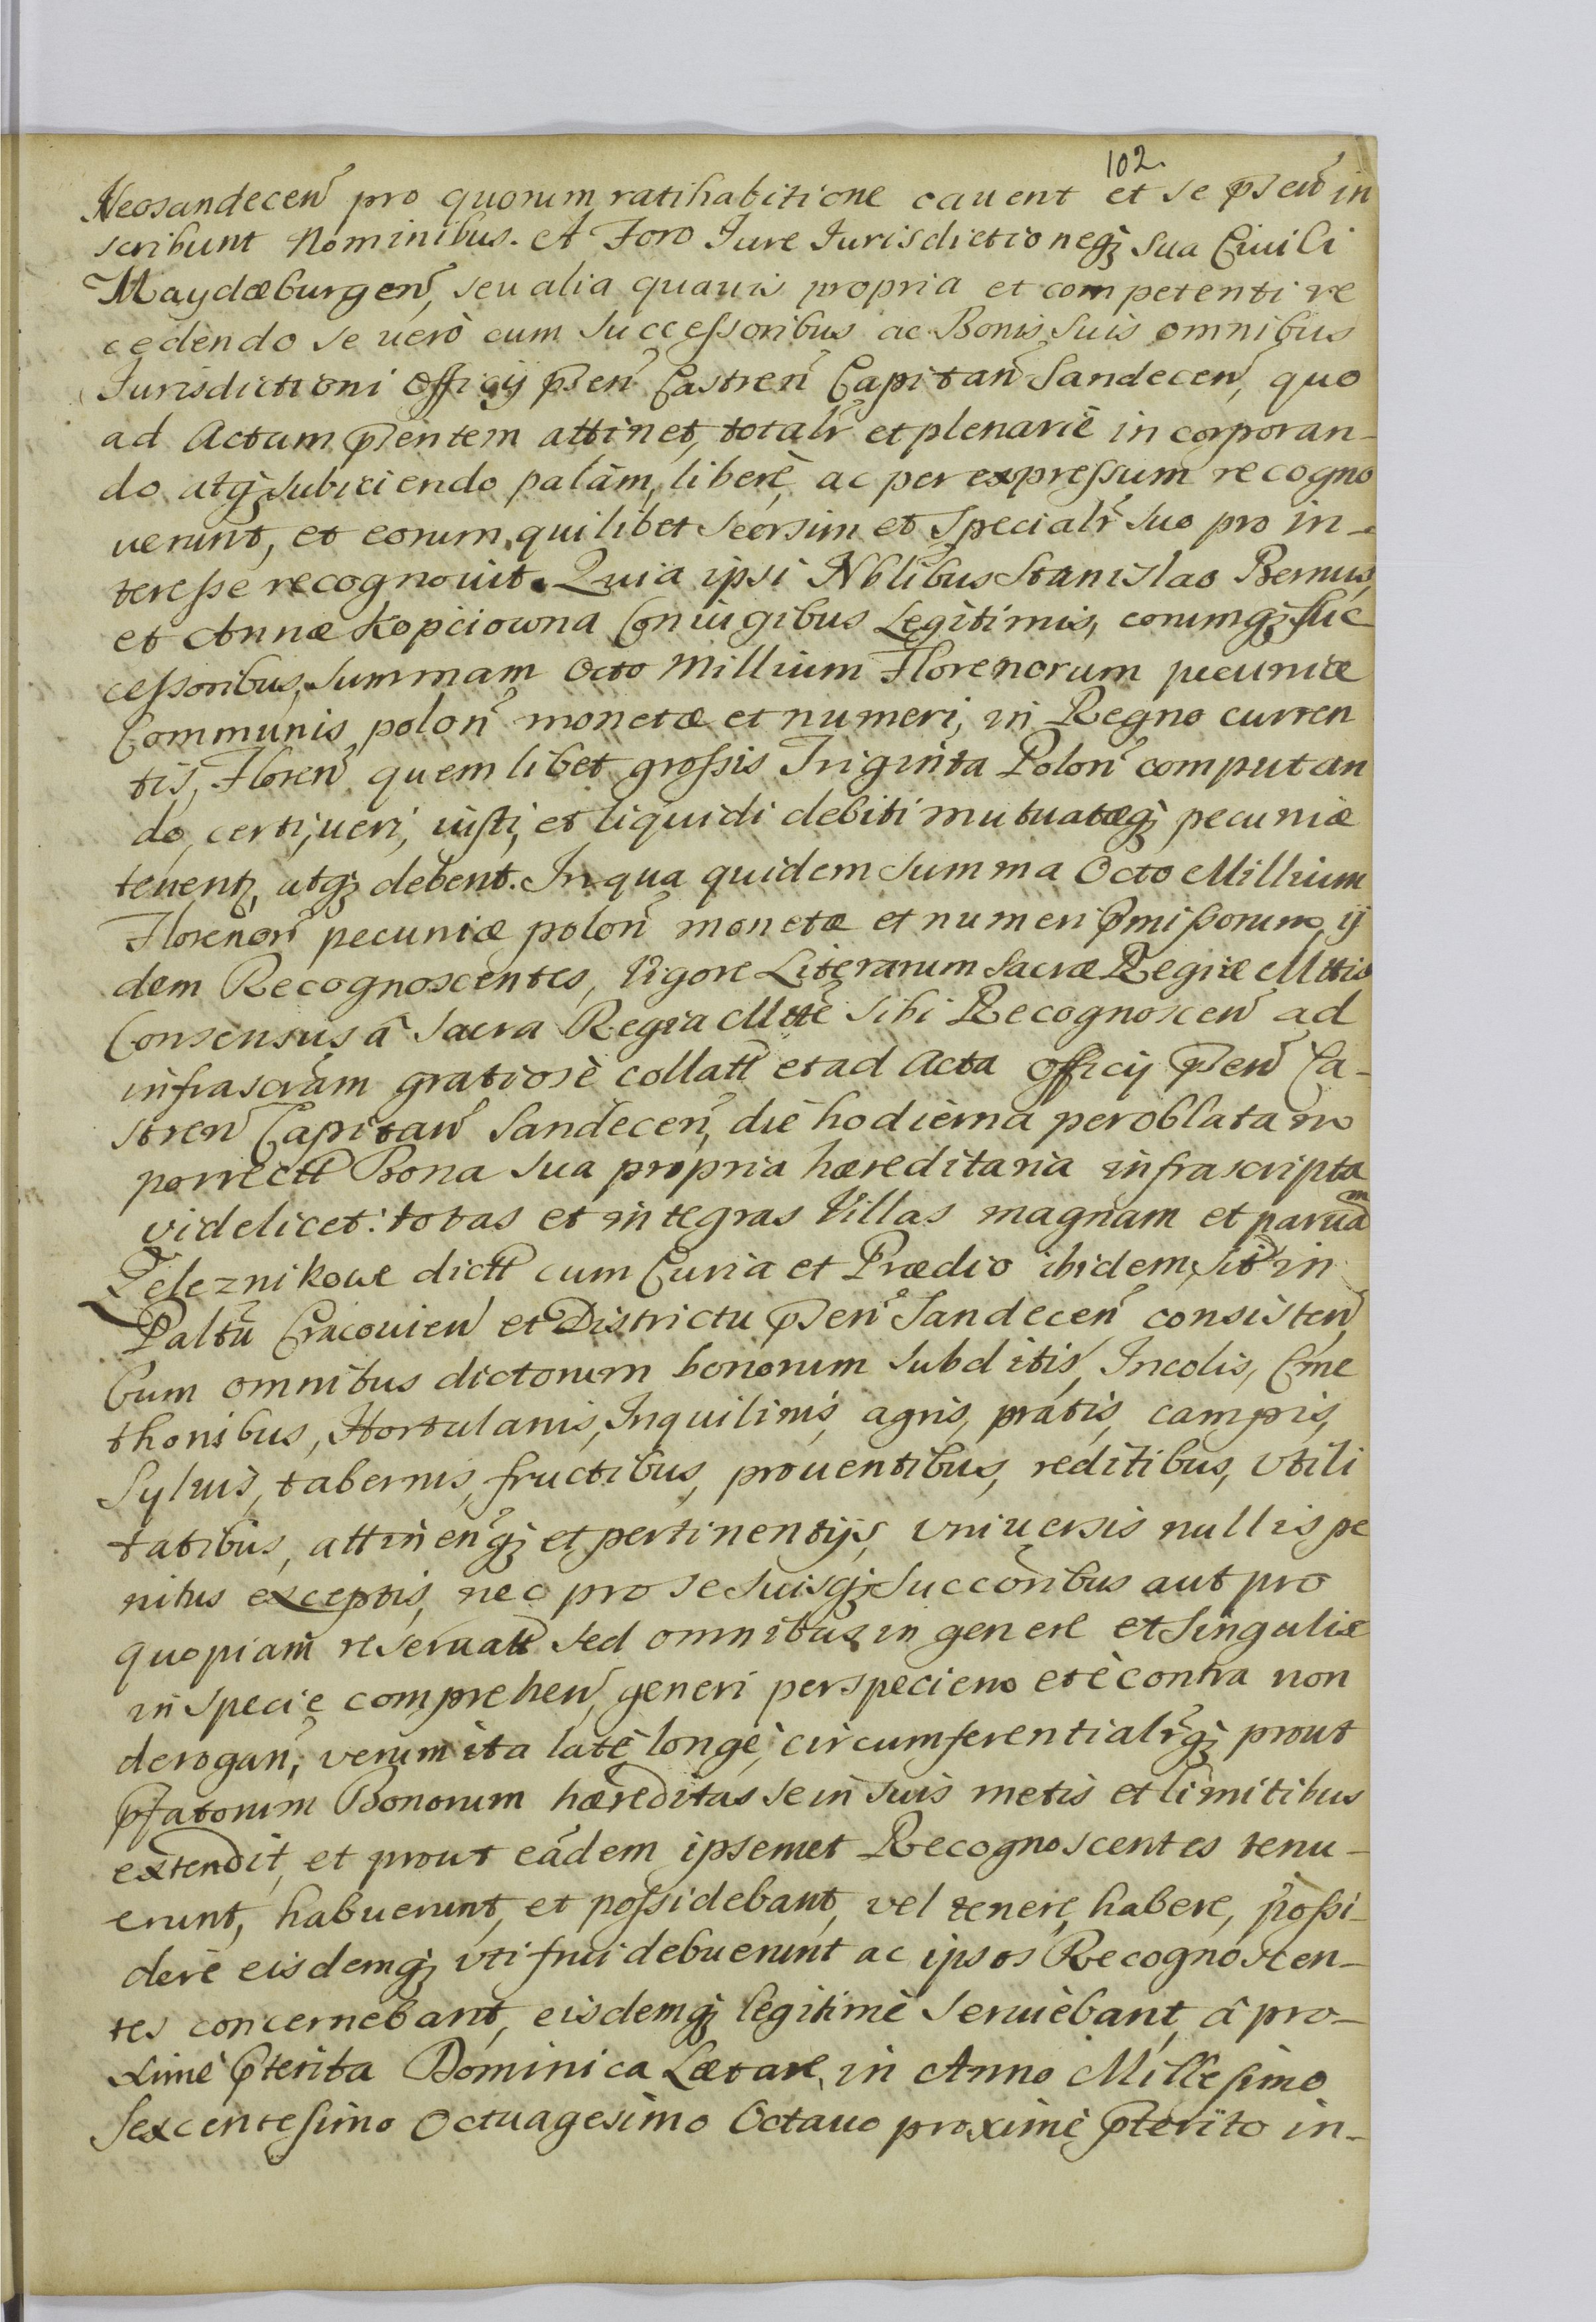 102.
Neosandecen̄ pro quorum ratihabitione cauent et se p̄sen̄ in
scribunt Nominibus. A Foro Iure Iurisdictioneq̨ sua Ciuili
Maydæburgen̄, seu alia quauis propria et competenti re
cedendo se verò cum successoribus ac Bonis suis omnibus
Iurisdictioni Officij p̄sen̄ Castren̄ Capitan̄ Sandecen̄, quo
ad Actum p̄sentem attinet, totalr̄ et plenariè incorporan-
do atq̨ subiiciendo palàm, liberè, ac per expressum recogno
uerunt, et eorum quilibet seorsim et specialr̄ suo pro in-
teresse recognouit. Quia ipsi Nblibus Stanislao Bernus,
et Annæ Kopciowna Coniugibus Legitimis, eorumq̨ suc
cessoribus, summam Octo Millium Florenorum pecuniæ
Communis polon̄ monetæ et numeri, in Regno curren
tis, Floren̄ quemlibet grossis Triginta Polon̄ computan
do, certi, ueri, iusti, et liquidi debiti mutuatæq̨ pecuniæ
tenent, atq̨ debent. In qua quidem summa Octo Millium
Florenor̄ pecuniæ polon̄ monetæ et numeri p̄missorum, ij
dem Recognoscentes, Vigore Literarum Sacræ Regiæ Mttis
Consensus à Sacra Regia Mtte sibi Recognoscen̄ ad
infrascr̄am gratiosè collatt et ad Acta Officij p̄sen̄ Ca-
stren̄ Capitan̄ Sandecen̄, die hodierna per oblatam
porrectt Bona sua propria hæreditaria infrascripta
videlicet: totas et integras Villas magnam et paruam
Zeleznikowe dictt cum Curia et Prædio ibidem, sit̄ in
Paltū Cracouien̄ et Districtu p̄sen̄ Sandecen̄ consisten̄
Cum omnibus dictorum bonorum subditis, Incolis, Cme
thonibus, Hortulanis, Inquilinis, agris, pratis, campis,
Syluis, tabernis, fructibus, prouentibus, reditibus, vtili
tatibus, attinen̄q̨ et pertinentijs, vniuersis nullis pe
nitus exceptis, nec pro se suisq̨ succōribus aut pro
quopiam reseruatt sed omnibus in genere et singulis
in specie comprehen̄, generi per speciem et è contra non
derogan̄; verum ita latè, longè, circumferentialr̄q̨ prout
p̄fatorum Bonorum hæreditas se in suis metis et limitibus
extendit, et prout eadem ipsemet Recognoscentes tenu-
erunt, habuerunt, et possidebant, vel tenere, habere, possi-
dere eisdemq̨ vti frui debuerunt ac ipsos Recognoscen-
tes concernebant, eisdemq̨ legitimè seruiebant, à pro-
ximè p̄terita Dominica Lætare, in Anno Millesimo
Sexcentesimo Octuagesimo Octauo proximè p̄terito in-